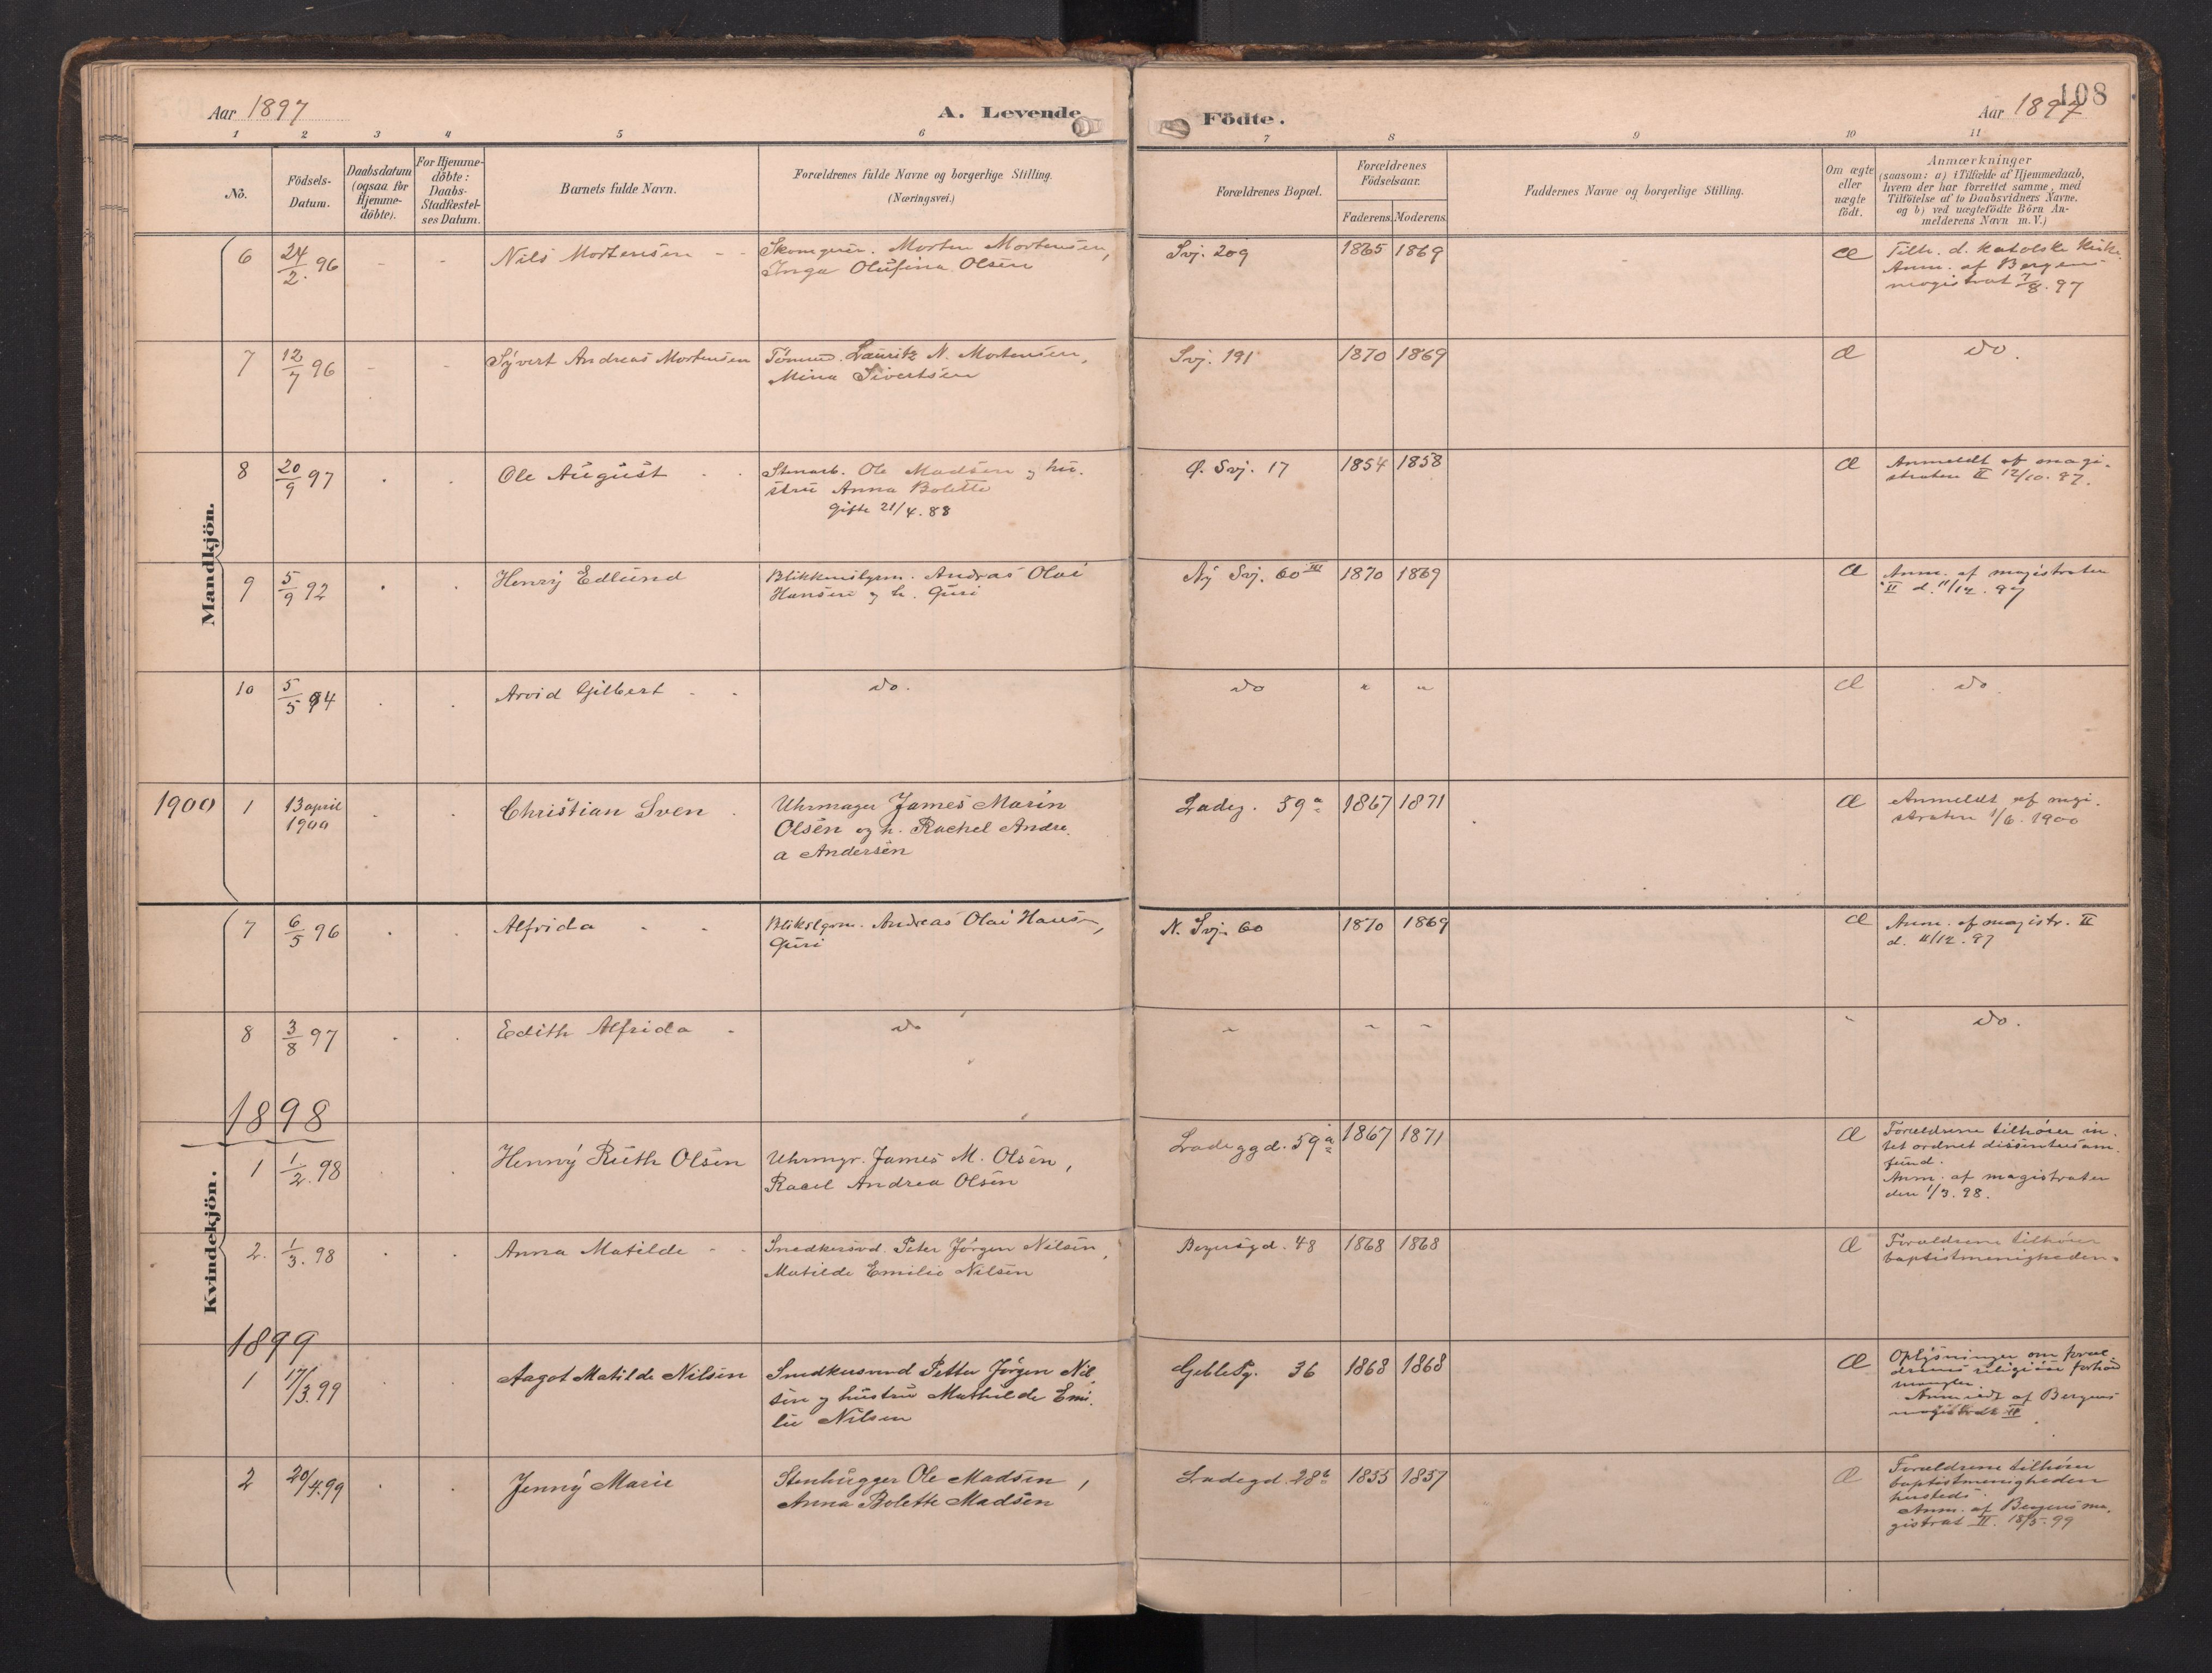 Aar 1897
A. Levende
Födte.
108
Aar 1897
1 2 3 4 5 6 7 8 9 10 11
No.
Födsels-
Datum.
Daabsdatum
(ogsaa for
Hjemme-
döbte).
For Hjemme-
döbte:
Daabs-
Stadfæstel-
ses Datum.
Barnets fulde Navn.
Forældrenes fulde Navne og borgerlige Stilling.
(Næringsvei.)
Forældrenes Bopæl.
Forældrenes
Födselsaar.
Faderens. Moderens.
Faddernes Navne og borgerlige Stilling.
Om ægte
eller
uægte
födt.
Anmærkninger
(saasom: a) i Tilfælde af Hjemmedaab,
hvem der har forrettet samme, med
Tilföielse af to Daabsvidners Navne,
og b) ved uægtefödte Börn An-
melderens Navn m. V.)
Mandkjön.
6 24/2. 96 - - Nils Mortensen - - Skomager. Morten Mortensen,
Inga Olufina Olsen
Svj. 209 1865 1869 Æ Tilh. d. katolske kirke.
Anm. af Bergens
magistrat 7/8. 97
7 12/7 96 - - Syvert Andreas Mortensen Tömmm. Lauritz N. Mortensen,
Mina Sivertsen
Svj. 191 1870 1869 Æ do.
8 20/9 97 Ole August Stenarb. Ole Madsen og hu-
stru Anna Bolette
gifte 21/4. 88
Ø. Svj. 17 1854 1858 Æ Anmeldt af magi-
straten II 12/10. 97.
9 5/9 92 Henry Edlund Blikkenslgrm. Andreas Olai
Hansen og h. Guri
Ny Svj. 60 III 1870 1869 Æ Anm. af magistraten
II d. 11/12. 97
10 5/5 94 Arvid Gilbert - - do.
do " " Æ do.
1900 1 13 april
1900
Christian Sven Uhrmager James Marin
Olsen og h. Rachel Andre-
a Andersen
Ladeg. 59 a 1867 1871 Æ Anmeldt af magi-
straten 1/6. 1900
Kvindekjön.
7 6/5 96 Alfrida - - Blikslgrm. Andreas Olai Hansen,
Guri
N. Svj. 60 1870 1869 Æ Anm. af magistr. II
d. 11/12. 97
8 3/8 97 Edith Alfrida - do
" " " " do.
1898
1 1/2. 98 Henny Ruth Olsen Uhrmgr. James M. Olsen,
Racel Andrea Olsen
Ladeggd. 59 a 1867 1871 Æ Forældrene tilhører in-
tet ordnet dissentersam-
fund.
Anm. af magistraten
den 1/3. 98.
2. 1/3. 98 Anna Matilde - - Snedkersvd. Peter Jørgen Nilsen,
Matilde Emilie Nilsen
48 1868 1868 Æ Forældrene tilhører
baptistmenigheden.
1899
1 17/3. 99 Aagot Matilde Nilsen Snedkersvend Petter Jørgen Nil-
sen og hustru Mathilde Emi-
lie Nilsen
36 1868 1868 Æ Oplysninger om foræl-
drenes religiøse forhold
mangler
Anmeldt af Bergens
magistrat II
2 20/4. 99 Jenny Marie Stenhugger Ole Madsen,
Anna Bolette Madsen
Ladegd. 28 b 1855 1857 Æ Forældrene tilhører
baptistmenigheden
hersteds.
Anm. af Bergens ma-
gistrat II. 18/5. 99